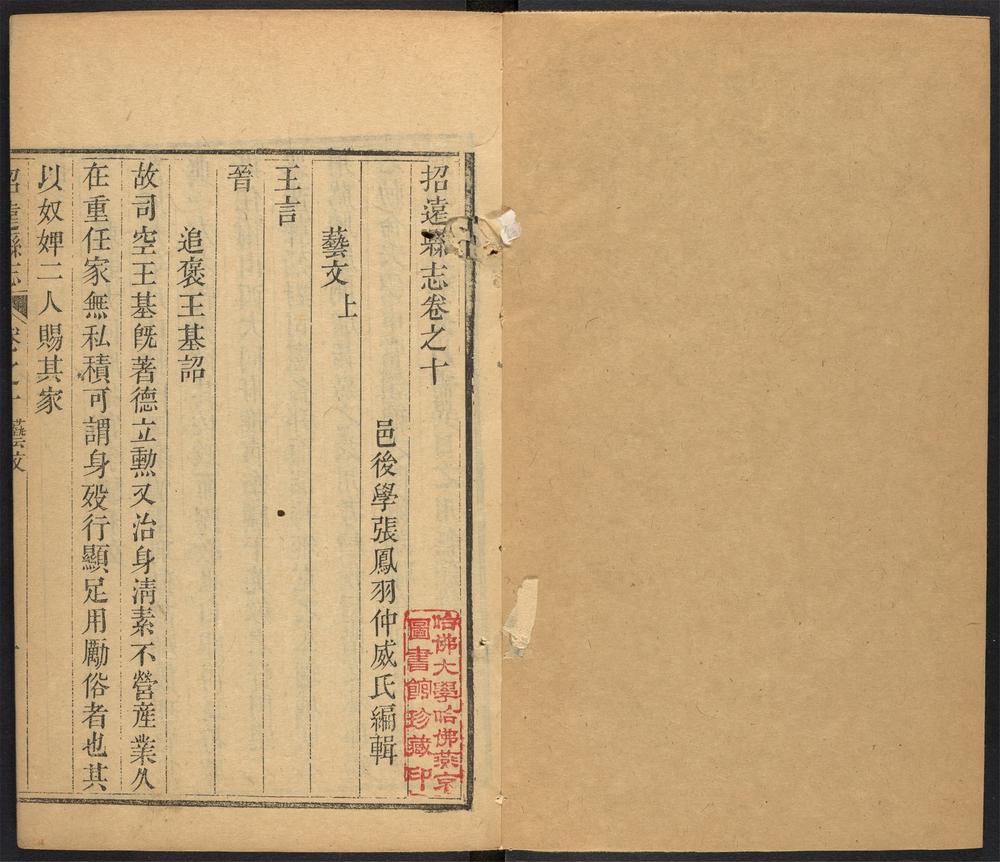 招遠縣志卷之十
邑後學張鳳羽仲威氏編輯
藝文上
王言
晉
追褒王基詔
故司空王基旣著德立勲又治身清素不營産業久
在重任家無私積可謂身殁行顯足用勵俗者也其
以奴婢二人賜其家
招遠縣志
卷之十
藝文
哈佛大學哈佛燕京
圖書館珍藏印